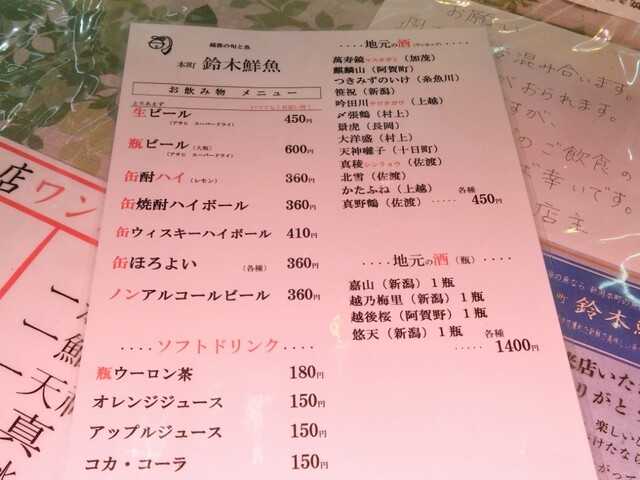 越後の旬と魚
本町 鈴木鮮魚
お飲み物 メニュー
とりあえず
生ビール 450円
(アサヒ スーパードライ)
瓶ビール(大瓶) 600円
(アサヒ スーパードライ)
缶酎ハイ(レモン) 360円
缶焼酎ハイボール 360円
缶ウィスキーハイボール 410円
缶ほろよい (各種) 360円
ノンアルコールビール 360円
････ソフトドリンク････
瓶ウーロン茶 180円
オレンジジュース 150円
アップルジュース 150円
コカ・コーラ 150円
････地元の酒(ワンカップ)････
萬寿鏡マスカガミ(加茂)
麒麟山(阿賀町)
つきみずのいけ(糸魚川)
笹祝(新潟)
吟田川チビタガワ(上越)
〆張鶴(村上)
景虎(長岡)
大洋盛(村上)
天神囃子(十日町)
真稜シンリョウ(佐渡)
北雪(佐渡)
かたふね(上越) 各種
真野鶴(佐渡)･････450円
････地元の酒(瓶)････
嘉山(新潟)1瓶
越乃梅里(新潟)1瓶
越後桜(阿賀野)1瓶
悠天(新潟)1瓶 各種
･････1400円
お願い
混み合います。
がおられます。
すが、
のご飲食の
幸いです。
店主
店ワン
一鮮
一天
真
鈴木
来店いた
りがと